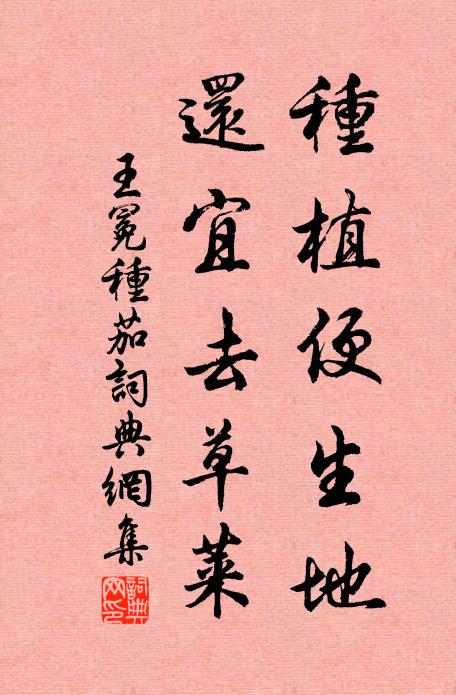 種植便生地
還宜去草萊
王冕種茄詞典網集
詞典
网印